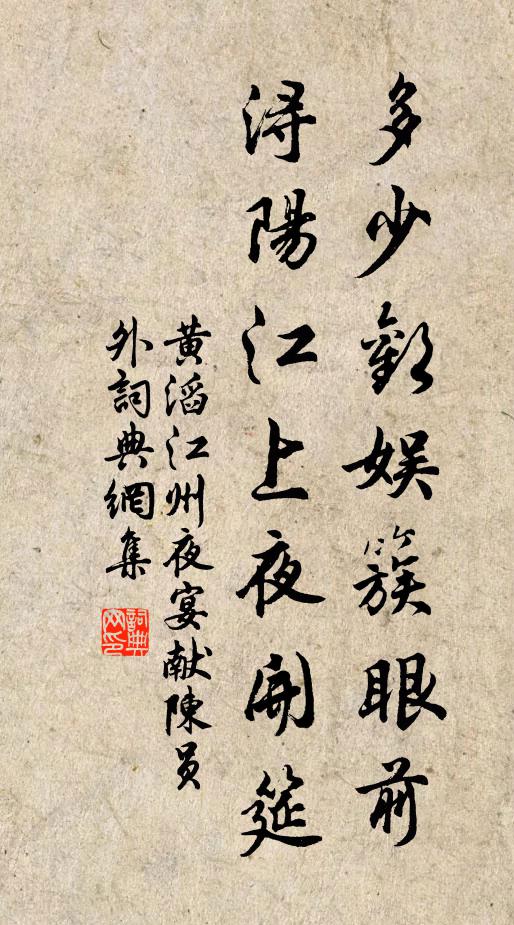 多少歡娛簇眼前
潯陽江上夜開筵
黃滔江州夜宴献陳員
外詞典網集
詞典网印